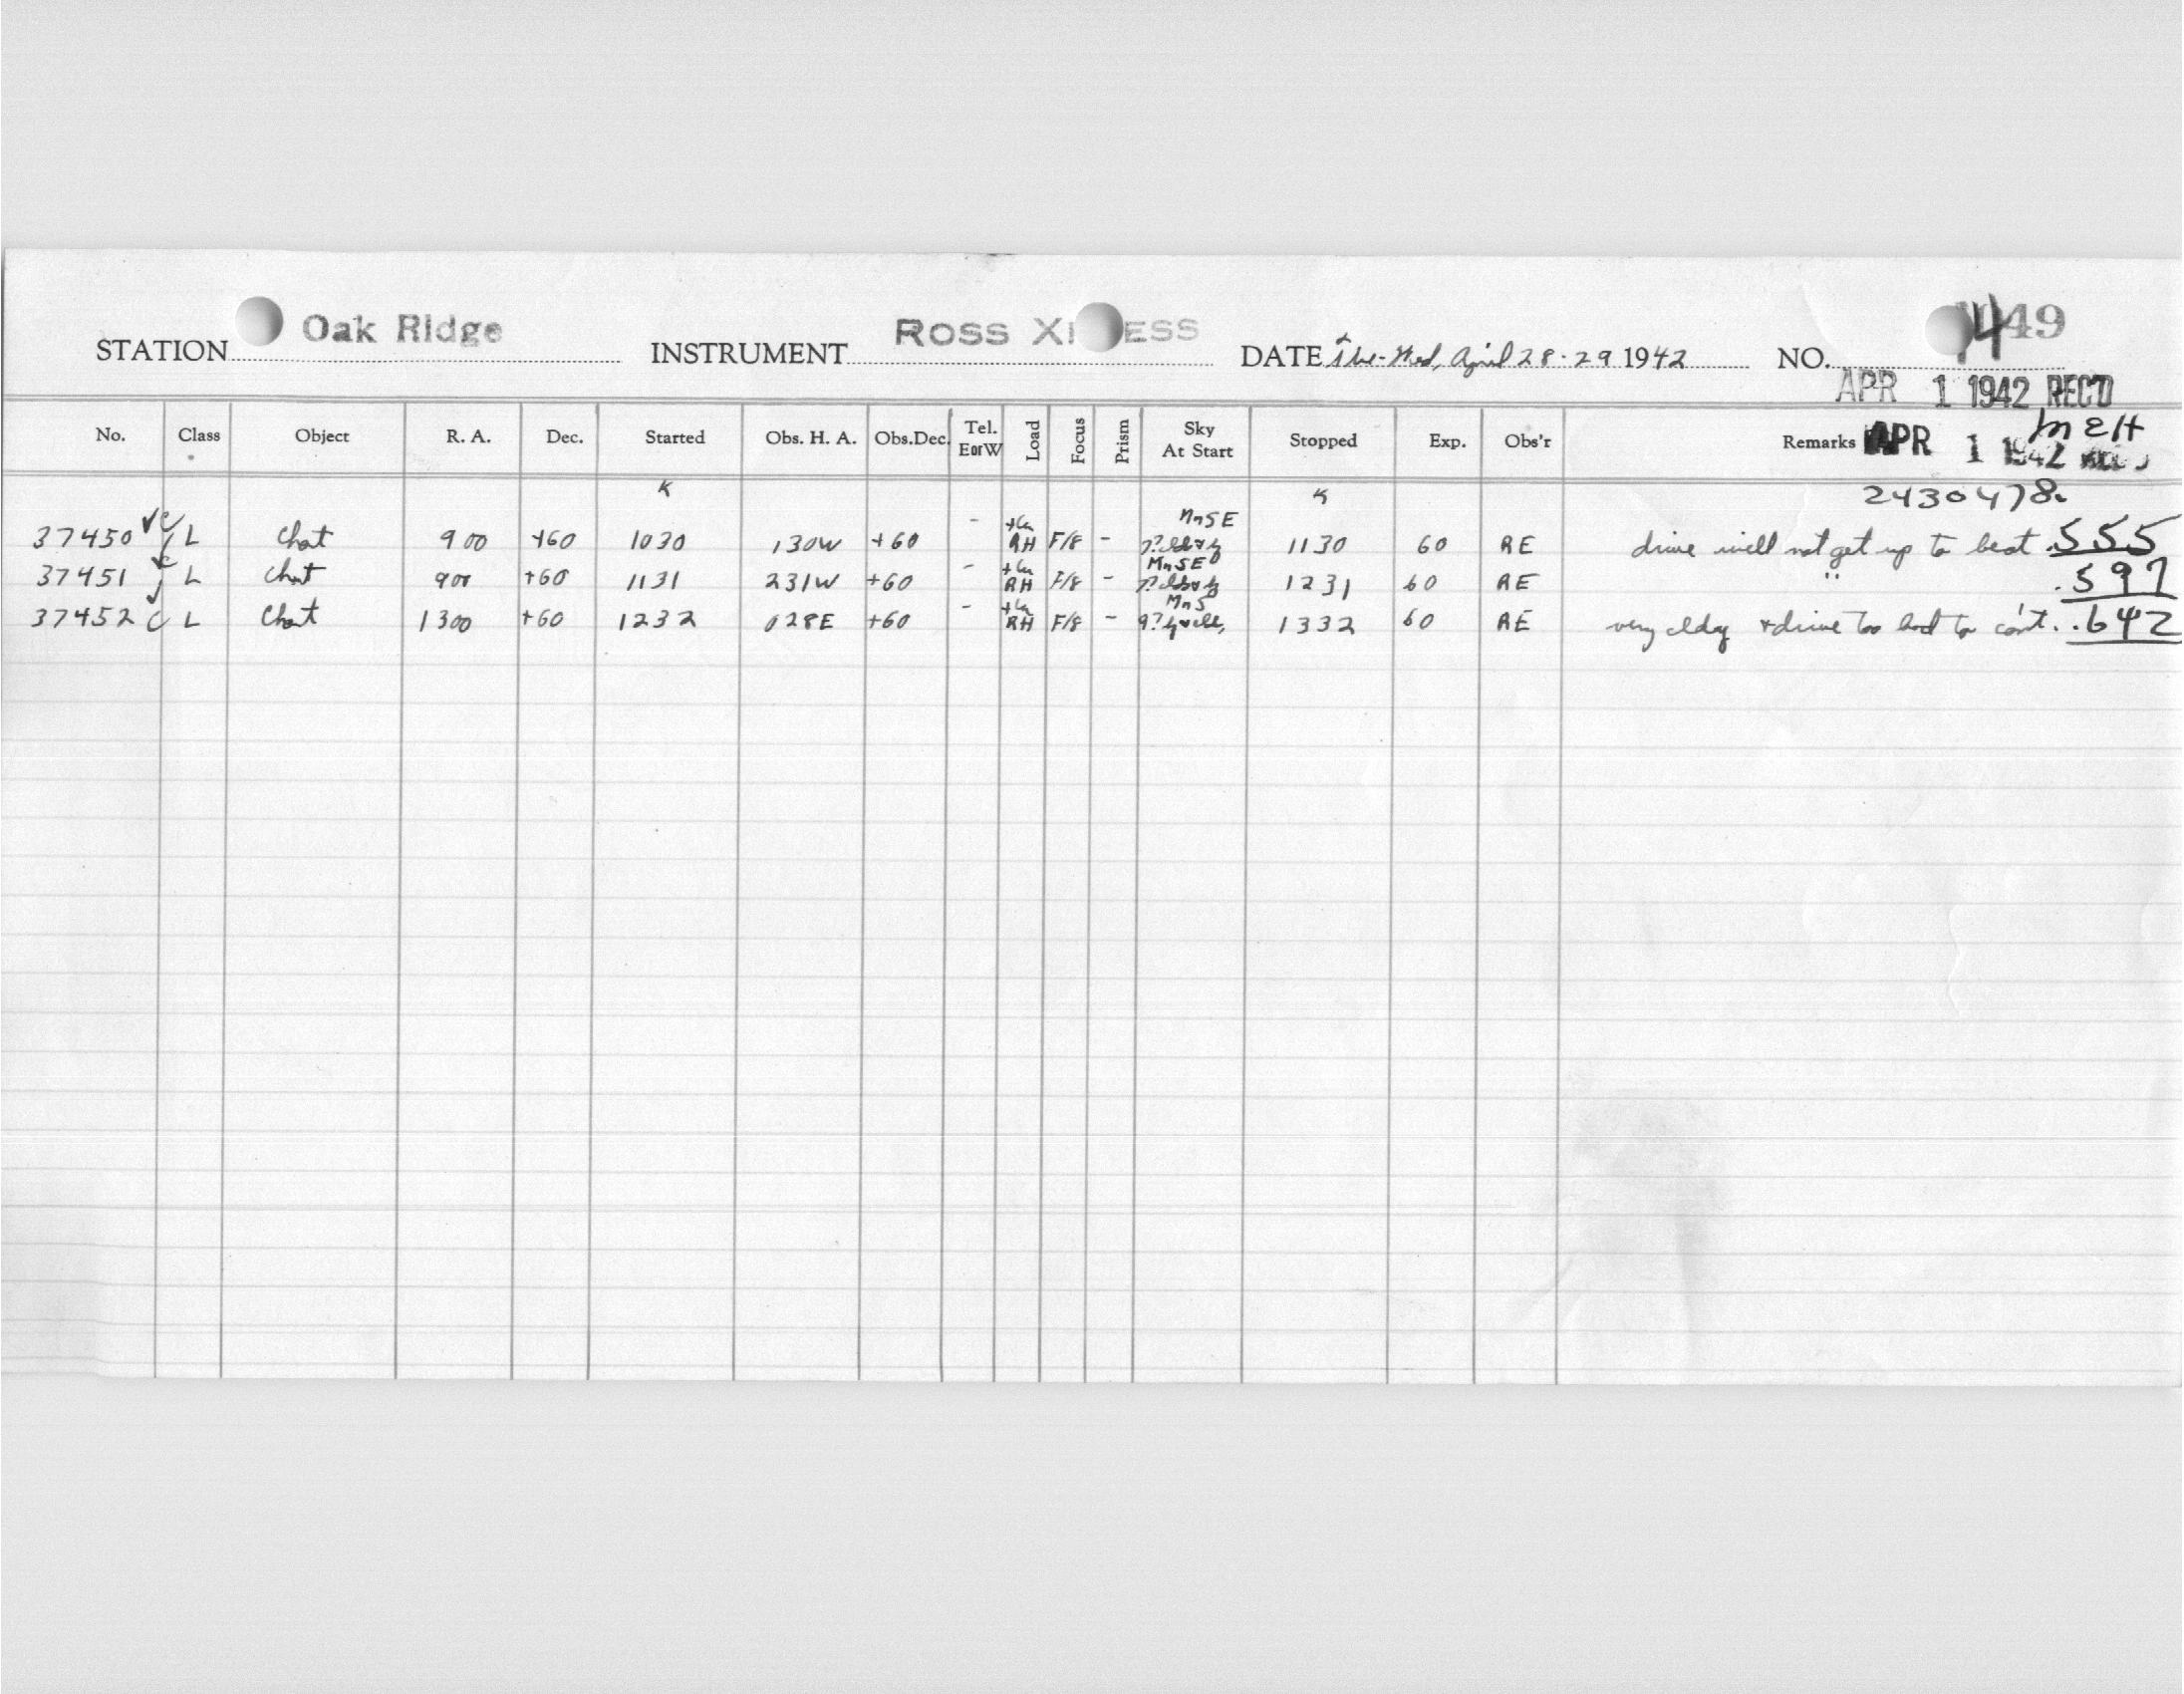 STATION Oak Ridge INSTRUMENT ROSS X ESS DATE April 28-29 1942 NO. 49
APR 1 1942 REC'D
No. Class Object R. A. Dec. Started Obs. H. A. Obs.Dec. Tel. E or W Load Focus Prism Sky At Start Stopped Exp. Obs'r Remarks APR 1 1942
K K 2430478.
MnSE
37450 ✓ C L Chat 900 +60 1030 130W +60 - RH F/8 - 1130 60 RE drive will not get up to beat .555
MnSE
37451 ✓ C L Chat 900 +60 1131 231W +60 - RH F/8 - 1231 60 RE " .597
MnS
37452 ✓ C L Chat 1300 +60 1232 028E +60 - RH F/8 - 1332 60 RE very cldy + drive too bad to con't. .642